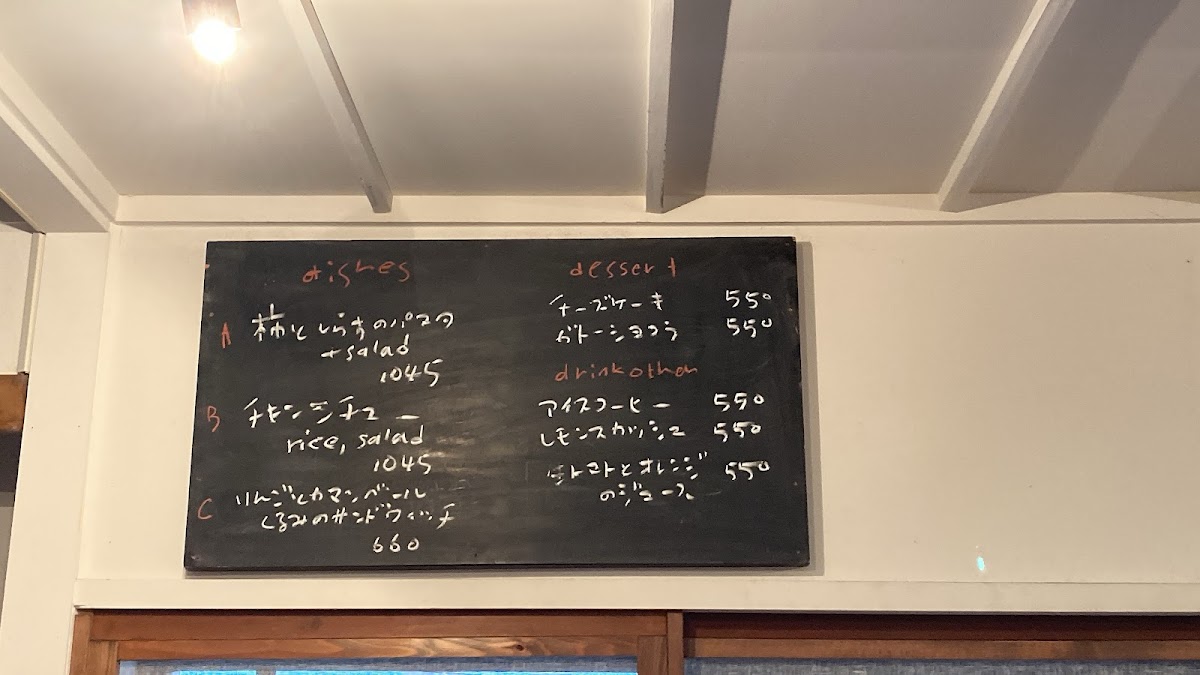 dishes
A
柿としらすのパスタ
+salad
1045
B
チキンシチュー
rice, salad
1045
C
りんごとカマンベール
くるみのサンドウィッチ
660
dessert
チーズケーキ 550
ガトーショコラ 550
drink other
アイスコーヒー 550
レモンスカッシュ 550
トマトとオレンジ 550
のジュース